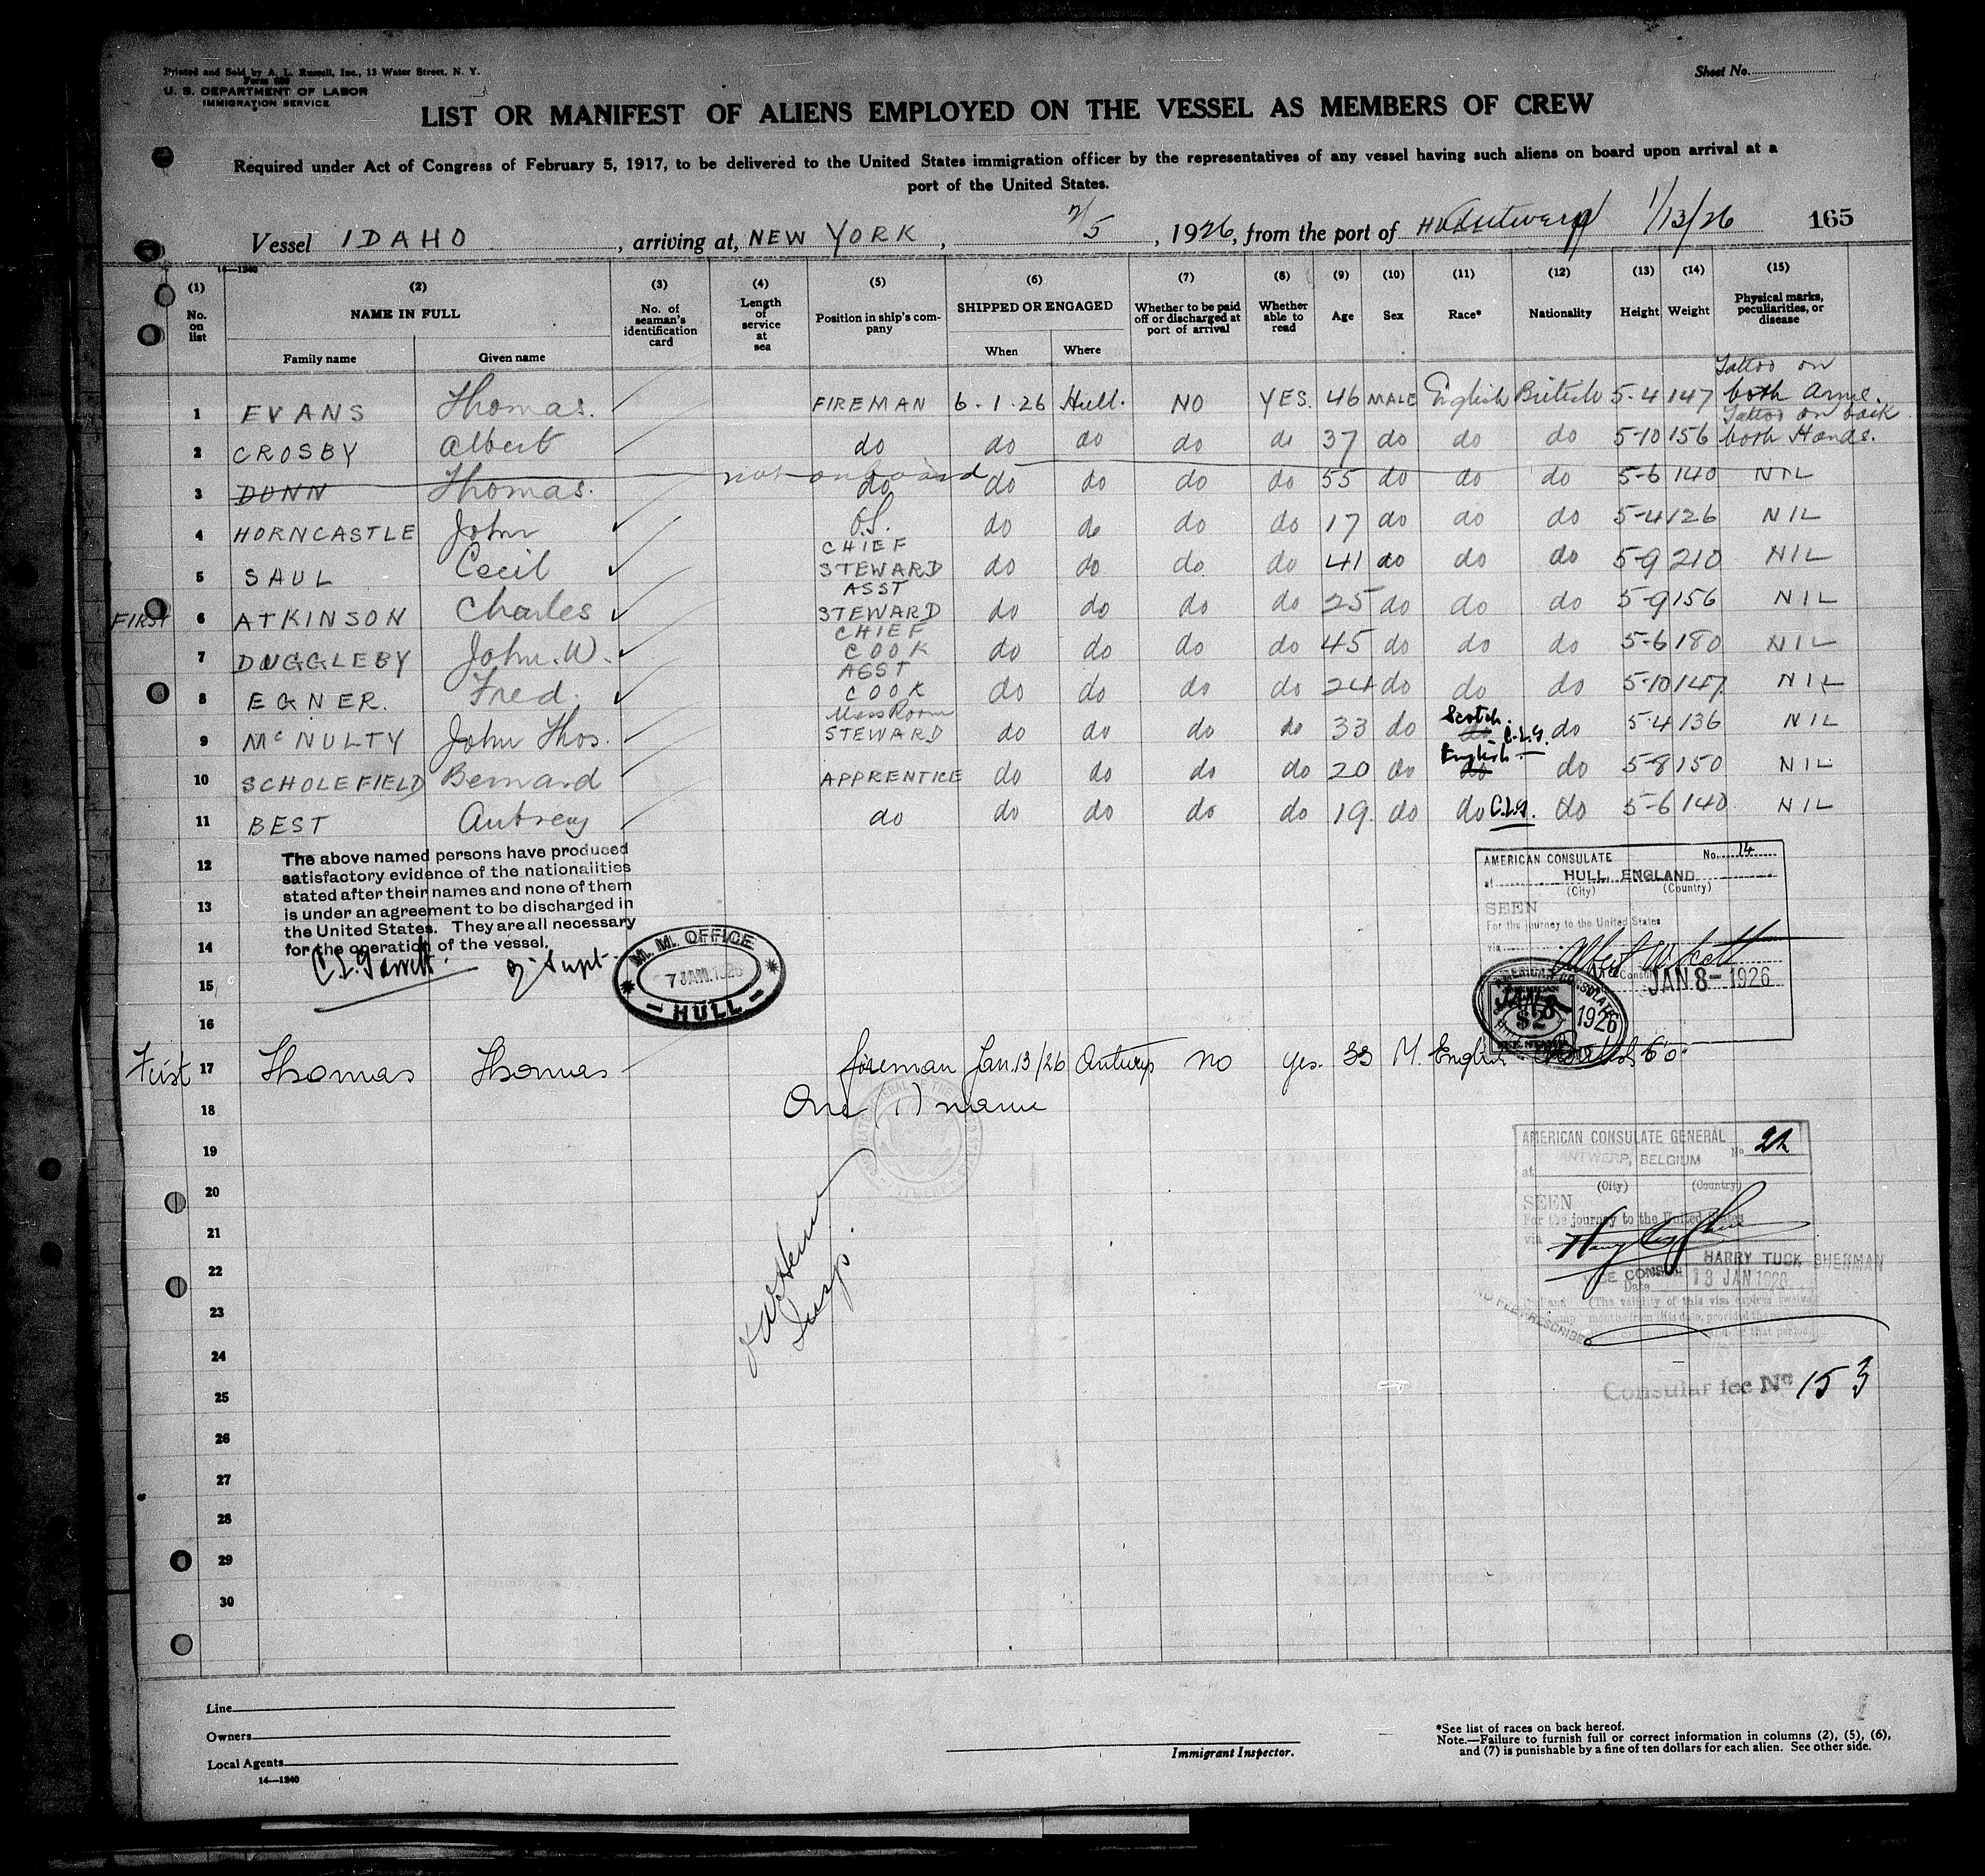 Printed and Sold by A. L. Russell, Inc., 13 Water Street, N. Y.
U. S. DEPARTMENT OF LABOR
IMMIGRATION SERVICE
Sheet No.
LIST OR MANIFEST OF ALIENS EMPLOYED ON THE VESSEL AS MEMBERS OF CREW
Required under Act of Congress of February 5, 1917, to be delivered to the United States immigration officer by the representatives of any vessel having such aliens on board upon arrival at a
port of the United States.
Vessel IDAHO, arriving at, NEW YORK, 2/5, 1926, from the port of Antwerp 1/13/26 165
14—1240
(1) (2) (3) (4) (5) (6) (7) (8) (9) (10) (11) (12) (13) (14) (15)
No. on list NAME IN FULL No. of seaman's identification card Length of service at sea Position in ship's company SHIPPED OR ENGAGED Whether to be paid off or discharged at port of arrival Whether able to read Age Sex Race* Nationality Height Weight Physical marks, peculiarities, or disease
Family name Given name When Where
1 EVANS Thomas. FIREMAN 6-1-26 Hull. NO YES. 46 MALE English British 5-4 147 Tattoo on both Arms.
2 CROSBY Albert do do do do do 37 do do do 5-10 156 Tattoo on back both Hands.
not on board
3 DUNN Thomas. do do do do do 55 do do do 5-6 140 NIL
4 HORNCASTLE John O.S. do do do do 17 do do do 5-4 126 NIL
5 SAUL Cecil CHIEF STEWARD do do do do 41 do do do 5-9 210 NIL
FIRST 6 ATKINSON Charles ASST STEWARD do do do do 25 do do do 5-9 156 NIL
7 DUGGLEBY John. W. CHIEF COOK do do do do 45 do do do 5-6 180 NIL
8 EGNER. Fred. ASST COOK do do do do 24 do do do 5-10 147 NIL
9 McNULTY John Thos. Mess Room STEWARD do do do do 33 do Scotch. do C.L.G. do 5-4 136 NIL
10 SCHOLEFIELD Bernard APPRENTICE do do do do 20 do English do do 5-8 150 NIL
11 BEST Autrey do do do do do 19 do do C.L.G. do 5-6 140 NIL
12
13
14
15
16
The above named persons have produced
satisfactory evidence of the nationalities
stated after their names and none of them
is under an agreement to be discharged in
the United States. They are all necessary
for the operation of the vessel.
C.L. Garrett
M. M. OFFICE
7 JAN. 1926
HULL
AMERICAN CONSULATE No. 14
at HULL, ENGLAND
(City) (Country)
SEEN
For the journey to the United States
via
JAN 8- 1926
AMERICAN CONSULATE
JAN 8 1926
$2
First 17 Thomas Thomas fireman Jan. 13/26 Antwerp no yes. 33 M. English British 6'0"
18 One (1) name
19
20
21
22
23
24
25
26
27
28
29
30
Insp.
AMERICAN CONSULATE GENERAL
No 22
at ANTWERP, BELGIUM
(City) (Country)
SEEN
For the journey to the United States
via
HARRY TUCK SHERMAN
VICE CONSUL
Date 13 JAN 1926
(The validity of this visa expires twelve
months from this date, provided
NO FEE PRESCRIBED
Consular fee No 153
Line
Owners
Local Agents
14—1240
Immigrant Inspector.
*See list of races on back hereof.
Note.—Failure to furnish full or correct information in columns (2), (5), (6),
and (7) is punishable by a fine of ten dollars for each alien. See other side.